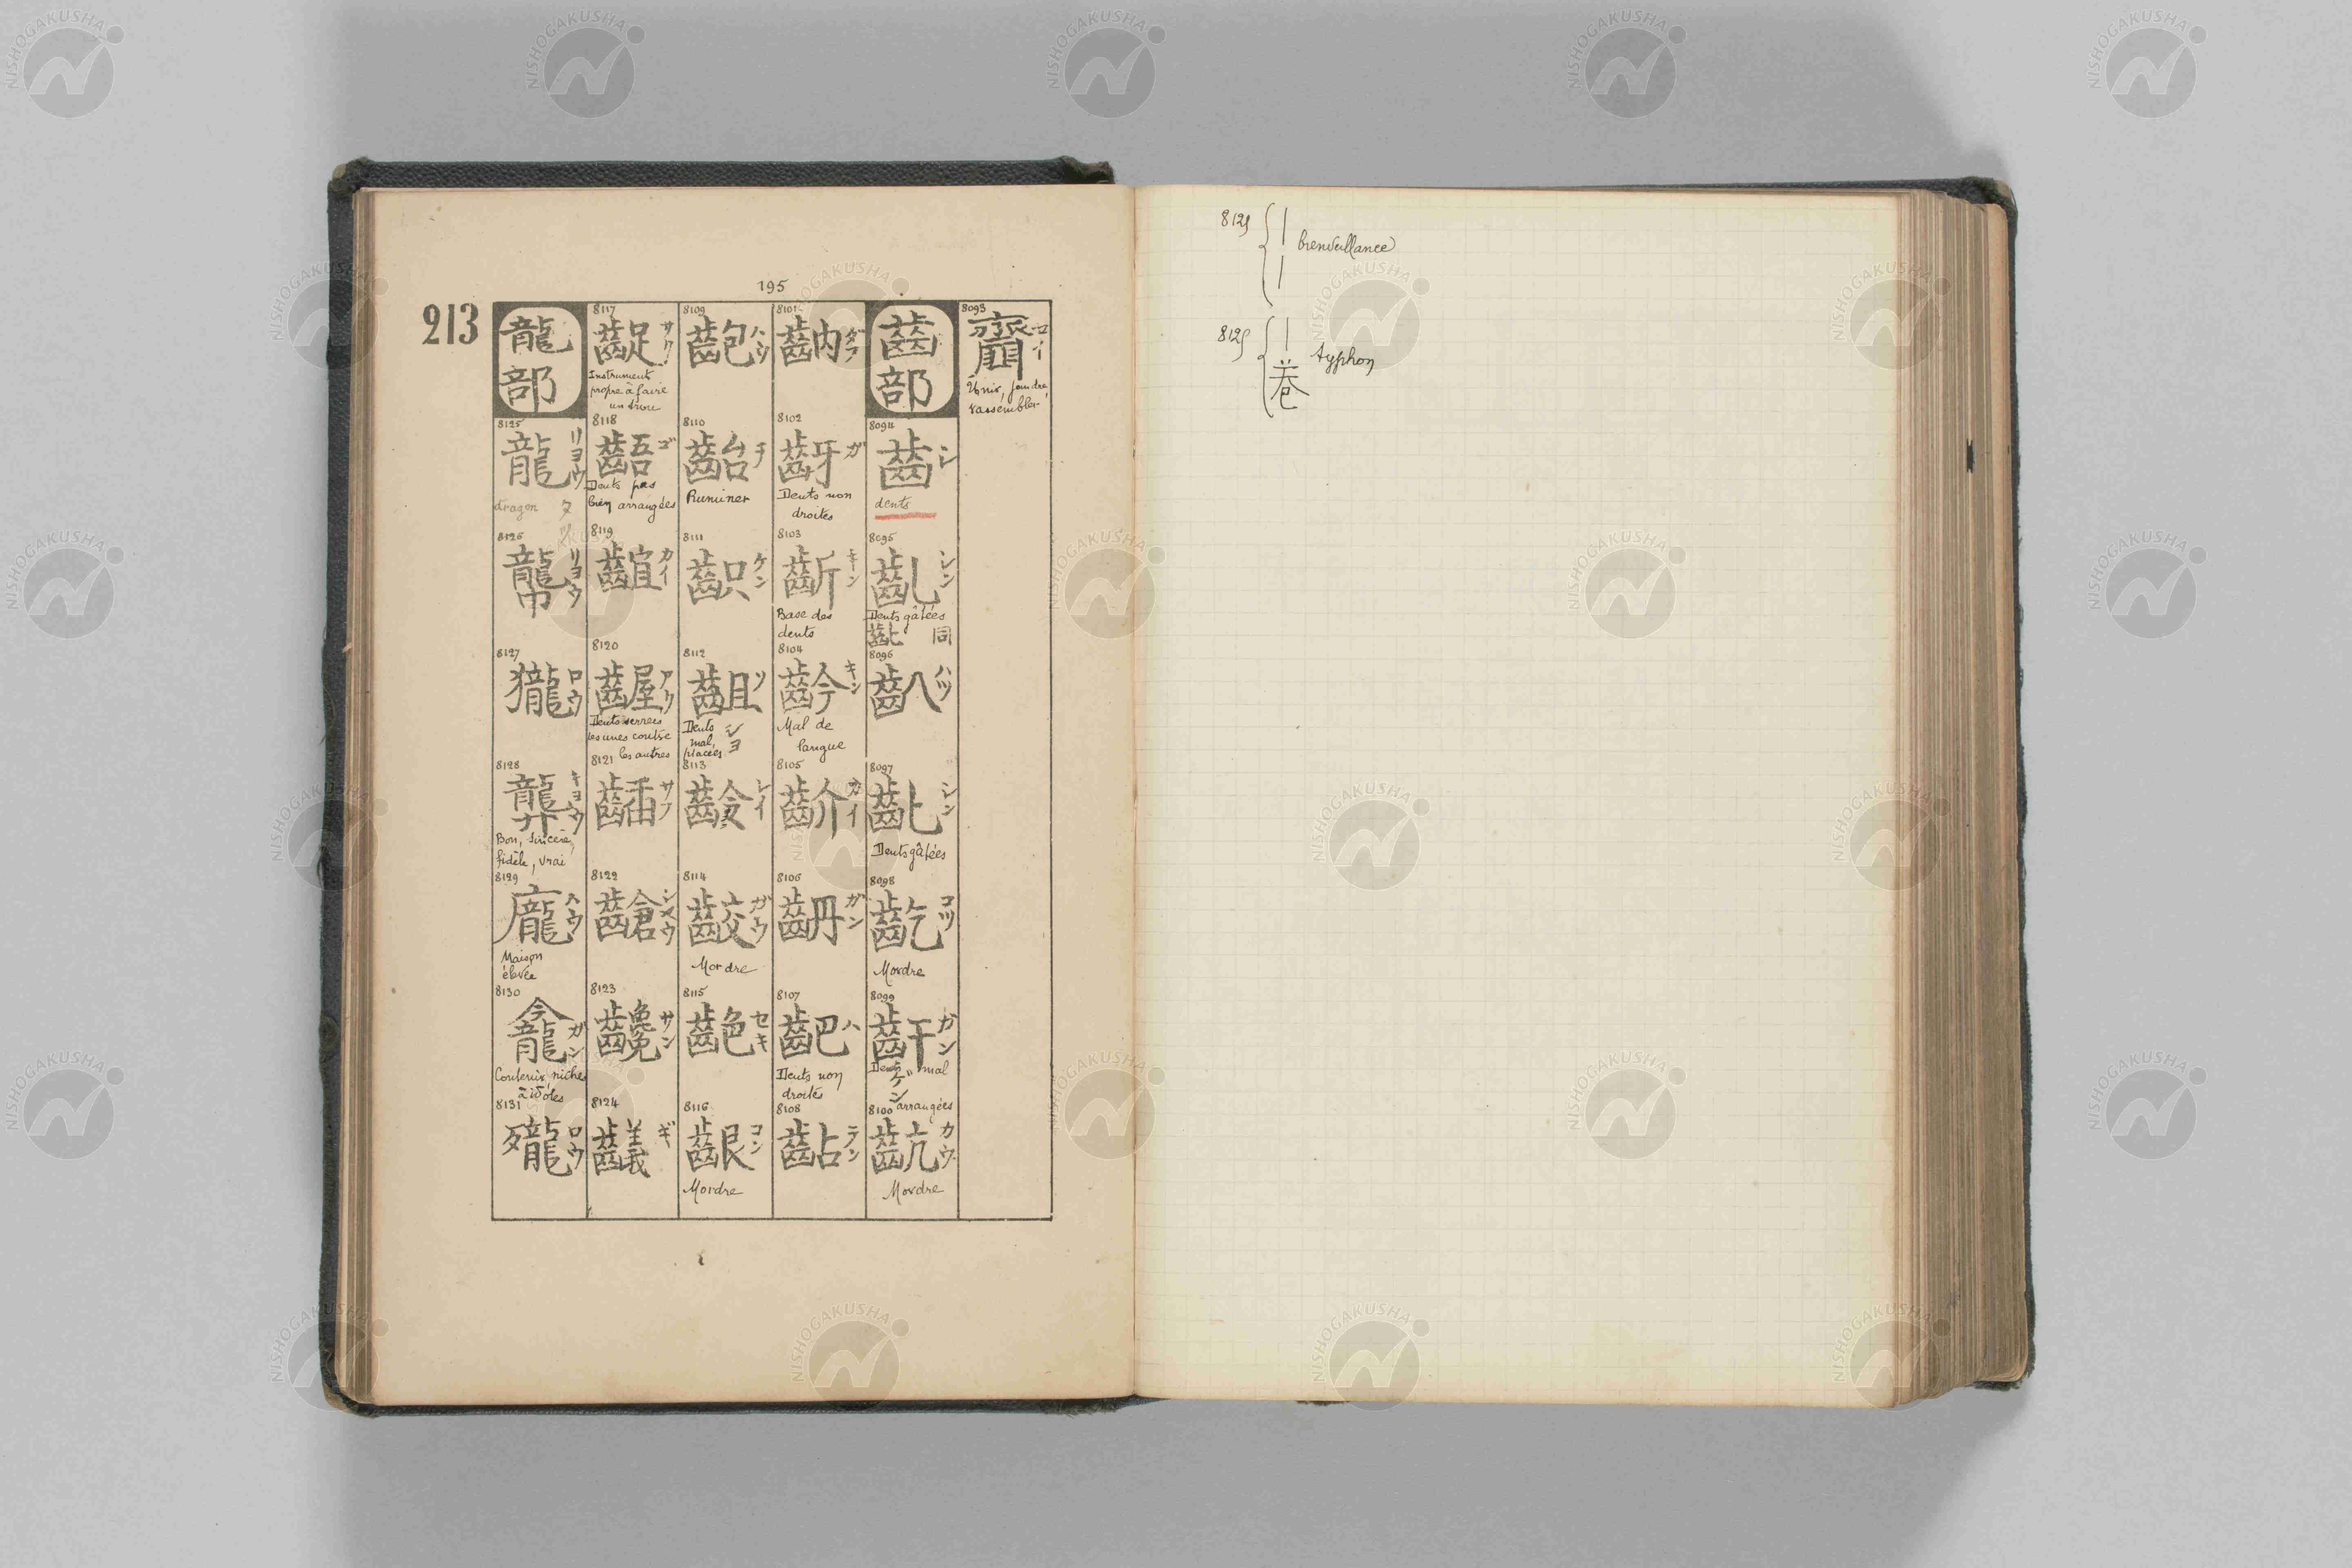 195
213
8093
齎
Unir, joindre,
rassembler
齒部
8094
齒
シ
dents
8095
齔
シン
Dents gâtées
齔 同
8096
ハツ
8097
齔
シン
Dents gâtées
8098
齕
コツ
Mordre
8099
カン
ゲン
Dents mal
arrangées
8100
カウ
Mordre
8101
8102
齖
ガ
Dents non
droites
8103
齗
キーン
Base des
dents
8104
齽
キン
Mal de
langue
8105
齘
カイ
8106
ガン
8107
齙
ハ
Dents non
droites
8108
テン
8109
齙
ハウ
8110
齝
チ
Ruminer
8111
ケン
8112
齟
ソ
ショ
Dents
mal
placées
8113
齡
レイ
8114
齩
ガウ
Mordre
8115
セキ
8116
齦
コン
Mordre
8117
齪
サク
Instrument
propre à faire
un trou
8118
齬
ゴ
Dents pas
bien arrangées
8119
カイ
8120
齷
アク
Dents serrées
les unes contre
les autres
8121
サフ
8122
シヤウ
8123
サン
8124
ギ
龍部
8125
龍
リヨウ
dragon
8126
リヨウ
8127
ロウ
8128
龏
キヨウ
Bon, sincère,
fidèle, vrai
8129
龐
ハウ
Maison
élevée
8130
龕
ガン
Contenir, niche
à idoles
8131
ロウ
8125
bienveillance
8125
巻
typhon